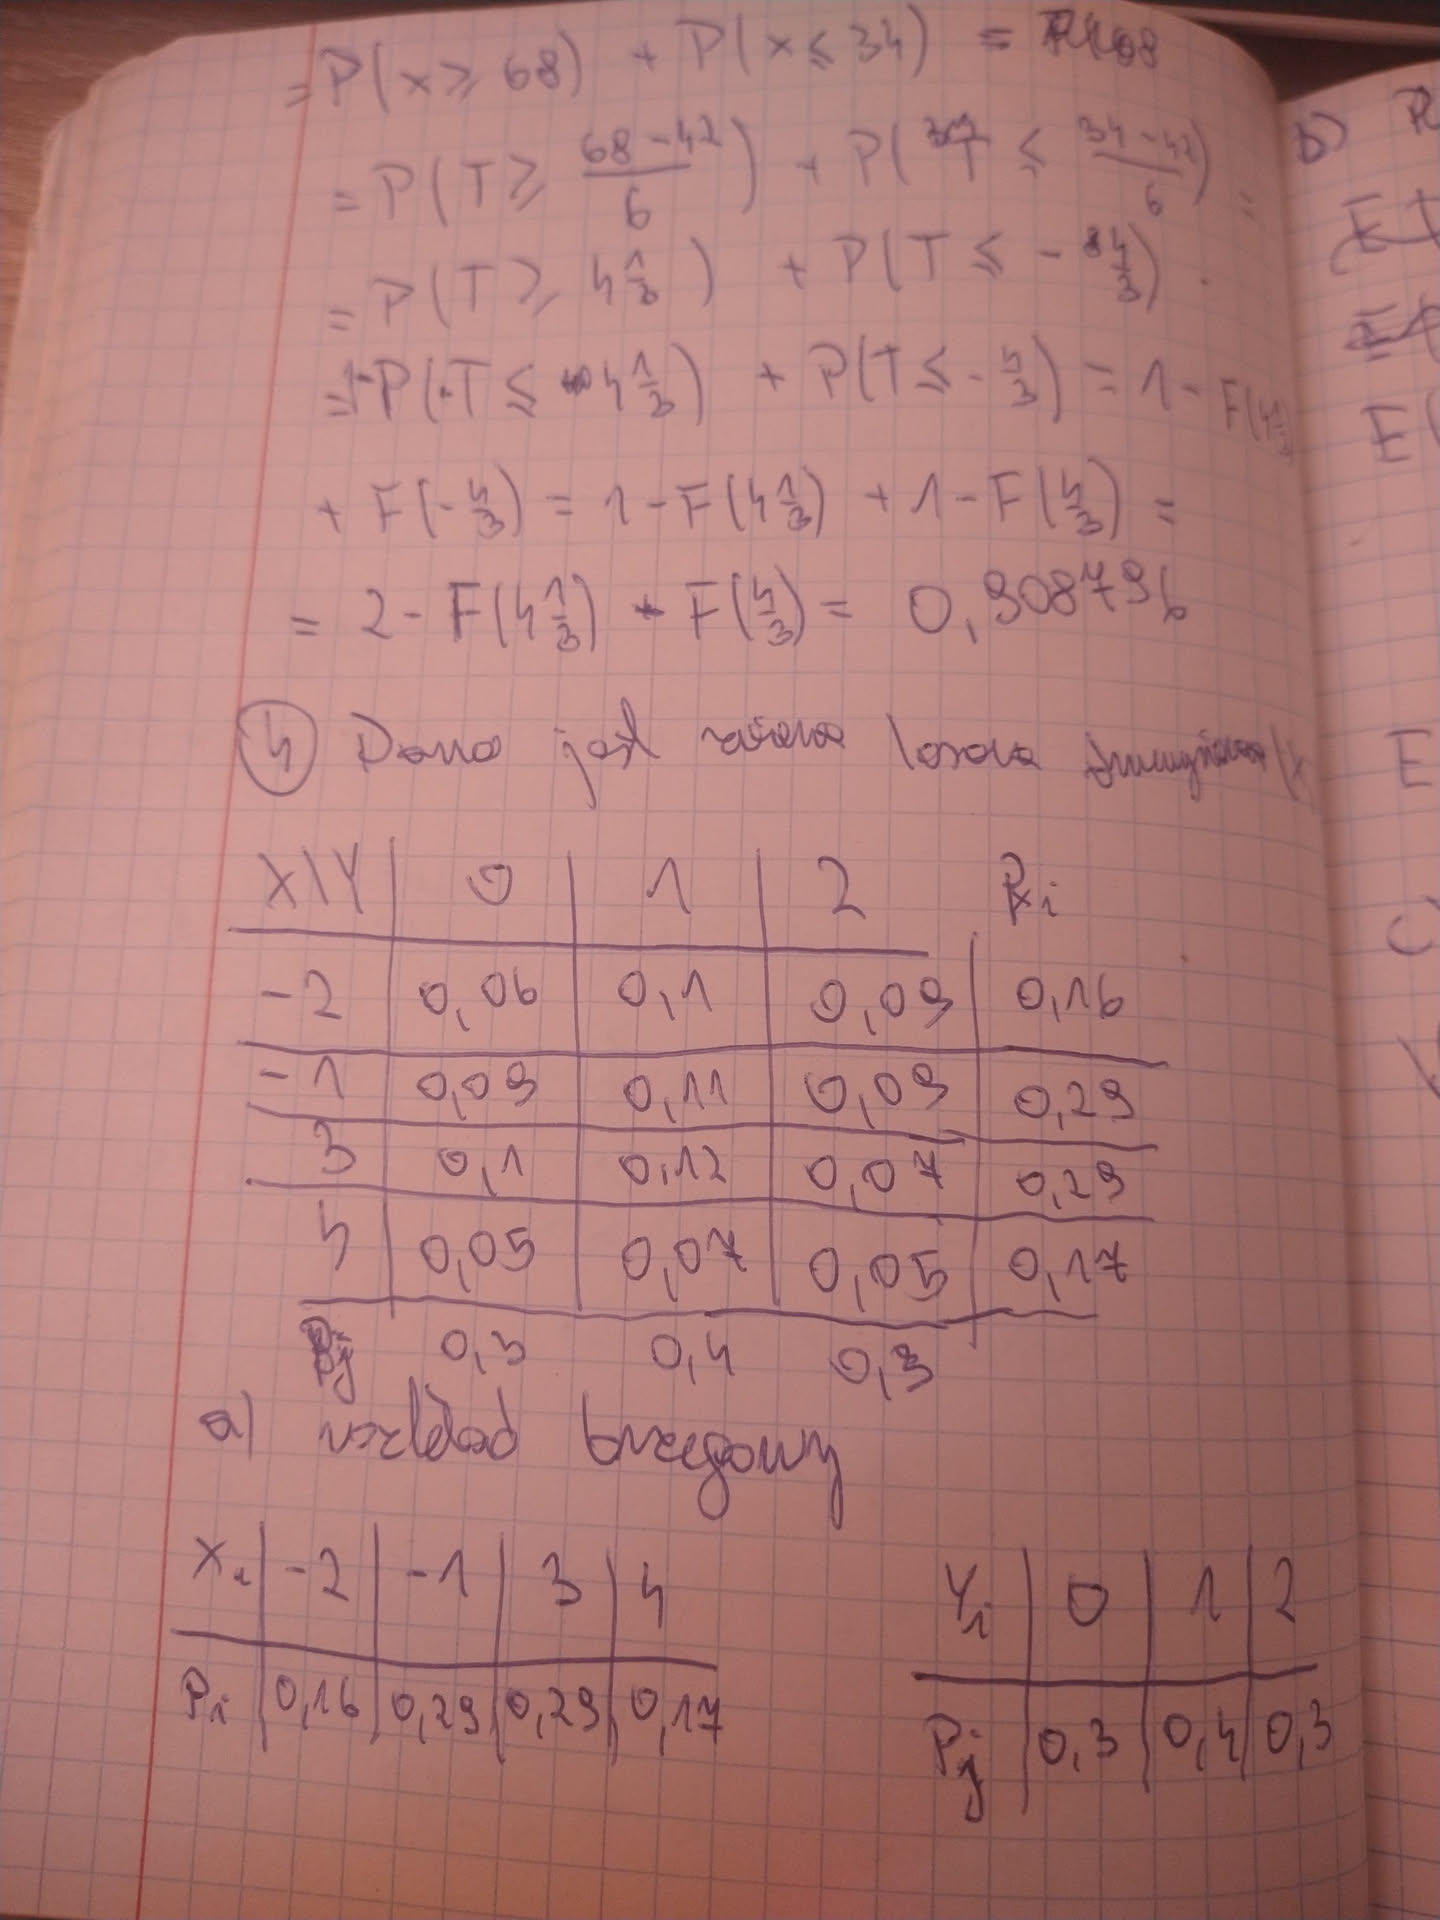 = P(x ≥ 68) + P(x ≤ 34) =
= P(T ≥ (68-42)/6) + P(T ≤ (34-42)/6) =
= P(T ≥ 4 1/3) + P(T ≤ - 4/3)
= 1-P(T ≤ 4 1/3) + P(T ≤ - 4/3) = 1 - F(4 1/3)
+ F(- 4/3) = 1 - F(4 1/3) + 1 - F(4/3) =
= 2 - F(4 1/3) - F(4/3) = 0,908796
4 Dana jest zmienna losowa dwuwymiarowa (X
X\Y | 0 | 1 | 2 | Pxi
-2 | 0,06 | 0,1 | 0,09 | 0,16
-1 | 0,09 | 0,11 | 0,09 | 0,29
3 | 0,1 | 0,12 | 0,07 | 0,29
4 | 0,05 | 0,07 | 0,05 | 0,17
Pj 0,3 0,4 0,3
a) rozkład brzegowy
Xi | -2 | -1 | 3 | 4
Pi | 0,16 | 0,29 | 0,29 | 0,17
Yi | 0 | 1 | 2
Pj | 0,3 | 0,4 | 0,3
b)
E
E(
E
c)